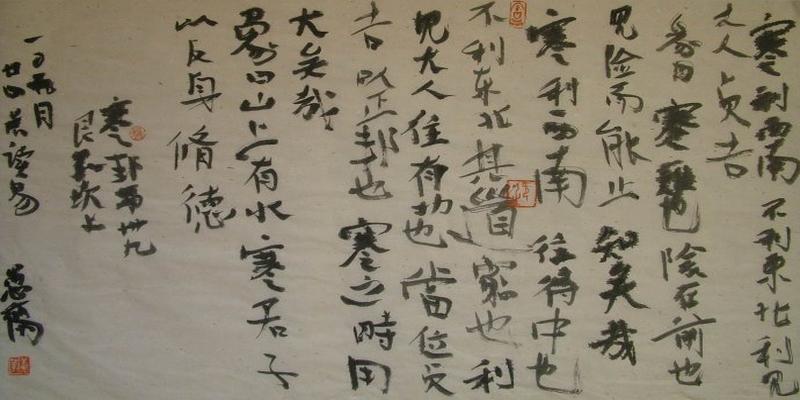 蹇利西南 不利東北 利見
大人 貞吉
彖曰 蹇難也 險在前也
見險而能止 知矣哉
蹇利西南 往得中也
不利東北 其道窮也 利
見大人 往有功也 當位貞
吉 以正邦也 蹇之時用
大矣哉
象曰 山上有水 蹇 君子
以反身脩德
蹇卦第卅九
艮下坎上
月
廿四 讀易